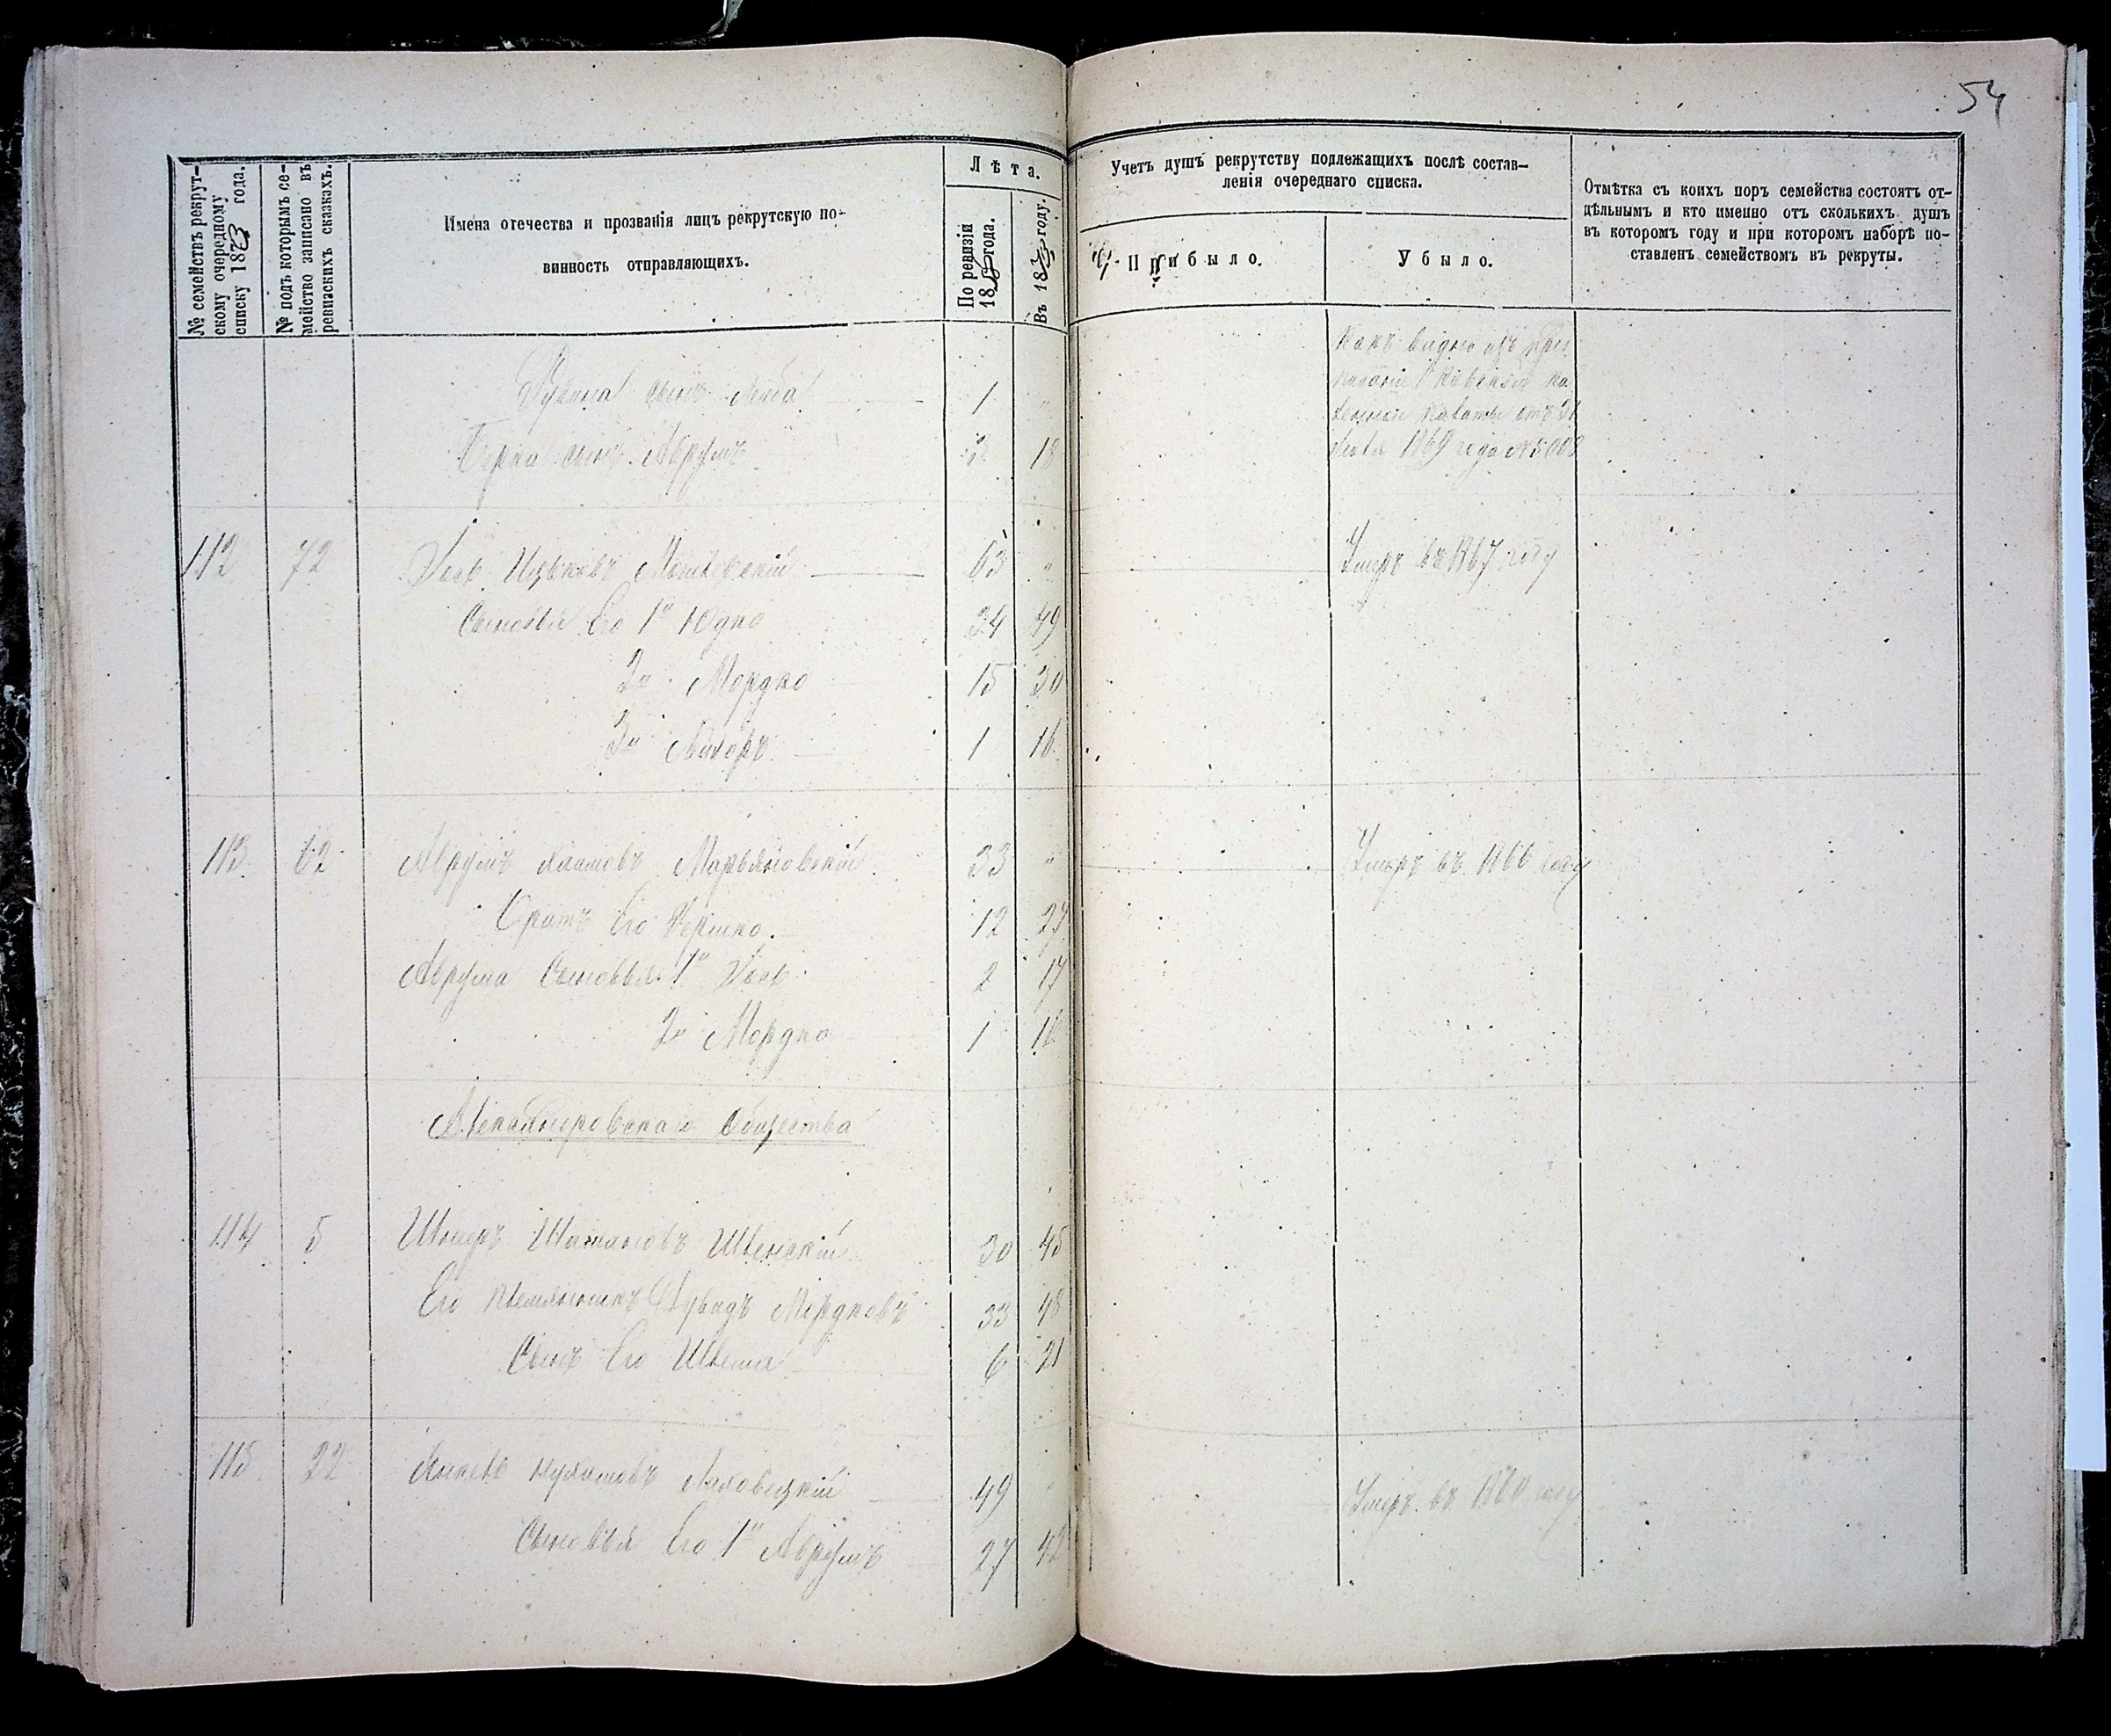 54
№ семействъ рекрут-
скому очередному
списку 1873 года.
№ подъ которымъ се-
мейство записано въ
ревизскихъ сказкахъ.
Имена отечества и прозванія лицъ рекрутскую по-
винность отправляющихъ.
Лѣта.
По ревизіи
18 года.
Въ 187 году.
Учетъ душъ рекрутству подлежащихъ послѣ состав-
ленія очереднаго списка.
Прибыло.
Убыло.
Отмѣтка съ коихъ поръ семейства состоятъ от-
дѣльнымъ и кто именно отъ сколькихъ душъ
въ которомъ году и при которомъ наборѣ по-
ставленъ семействомъ въ рекруты.
сынъ Лейба 1 "
Берка сынъ Аврумъ 3 18
Какъ видно изъ пред
писанія Кіевской Ка
зенной Палаты отъ 31
1869 года №5008
112 72 Іось Ицьковъ 63 " Умеръ въ 1867 году
Сыновья Его 1й Юдко 34 49
2й Мордко 15 30
3й 1 16
113 62 Аврумъ Марьяновскій 33 " Умеръ въ 1866 году
Братъ Его Гершко 12 27
Аврума Сыновья 1й Іось 2 17
2й Мордко 1 16
Александровскаго Общества
114 5 30 45
Его племянникъ Дувидъ Мордковъ 33 48
Сынъ Его 6 21
115 22 49 " Умеръ въ 1860 году
Сыновья Его 1й Аврумъ 27 42